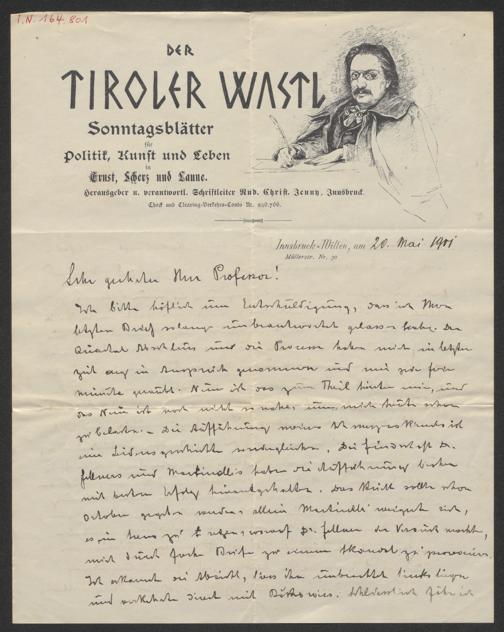 I.N. 164.801
DER
TIROLER WASTL
Sonntagsblätter
für
Politik, Kunst und Leben
in
Ernst, Scherz und Laune.
Herausgeber u. verantwortl. Schriftleiter Rud. Christ. Jenny, Innsbruck.
Check und Clearing-Verkehrs-Conto Nr.
Innsbruck-Wilten, am 20. Mai 1901
Müllerstr. Nr.
Sehr geehrter Herr Professor!
Ich bitte höflich um Entschuldigung, dass ich Ihren
letzten Brief solange unbeantwortet gelassen habe. Der
Quartal Abschluss und die Processe haben mich in letzter
Zeit arg in Anspruch genommen und mir jede freie
Minute geraubt. Nun ist das zum Theil hinter mir, und
das Neue ist noch nicht so nahe, um mich heute schon
zu belasten. – Die Aufführung meines ist
eine Leidensgeschichte sondergleichen. Die Feindschaft Dr.
Fellners und Martinellis haben die Aufführung bisher
mit bestem Erfolg hinausgehalten. Das Stück sollte schon
October gegeben werden, allein Martinelli weigert sich,
es in zu worauf Dr. Fellner den Versuch machte,
mich durch Briefe zu einem Skandal zu provocieren.
Ich erkannte die Absicht, liess ihn unbeachtet links liegen
und verkehrte direct mit Schliesslich ich